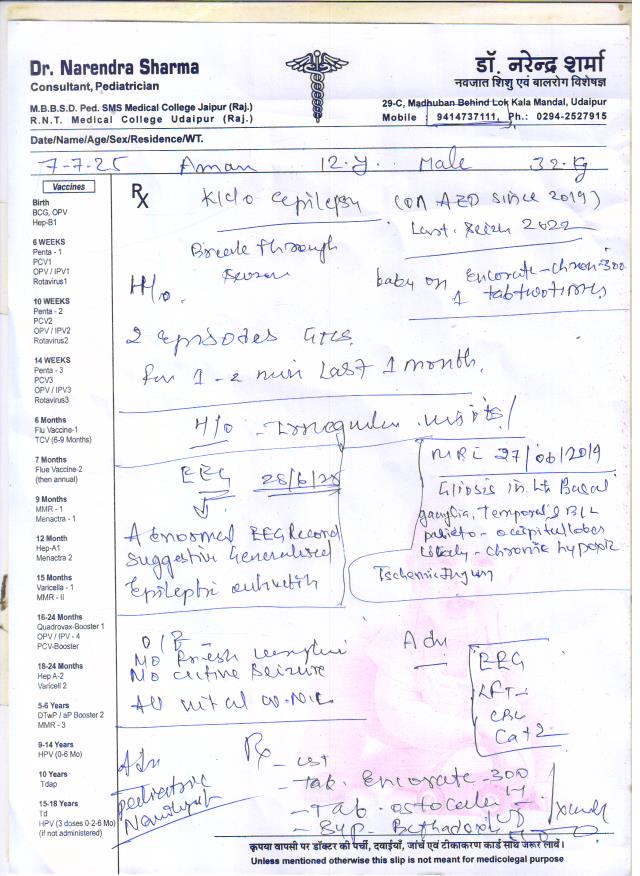 Dr. Narendra Sharma
Consultant, Pediatrician
M.B.B.S.D. Ped. SMS Medical College Jaipur (Raj.)
R.N.T. Medical College Udaipur (Raj.)
डॉ. नरेन्द्र शर्मा
नवजात शिशु एवं बालरोग विशेषज्ञ
29-C, Madhuban Behind Lok Kala Mandal, Udaipur
Mobile 9414737111, Ph.: 0294-2527915
Date/Name/Age/Sex/Residence/WT.
7-7-25 Aman 12.y. Male 32.kg
Vaccines
Birth
BCG, OPV
Hep-B1
6 WEEKS
Penta - 1
PCV1
OPV / IPV1
Rotavirus1
10 WEEKS
Penta - 2
PCV2
OPV / IPV2
Rotavirus2
14 WEEKS
Penta - 3
PCV3
OPV / IPV3
Rotavirus3
6 Months
Flu Vaccine-1
TCV (6-9 Months)
7 Month
Flue Vaccine-2
(then annual)
9 Months
MMR - 1
Menactra - 1
12 Month
Hep-A1
Menactra 2
15 Months
Varicella - 1
MMR - II
16-24 Months
Quadrovax-Booster 1
OPV / IPV - 4
PCV-Booster
18-24 Month
Hep A-2
Varicell 2
5-6 Years
DTwP / aP Booster 2
MMR - 3
9-14 Years
HPV (0-6 Mo)
10 Years
Tdap
15-18 Years
Td
HPV (3 doses 0-2-6 Mo)
(if not administered)
Rx
K/c/o epilepsy (on AED since 2019)
Last 2022
Break through
baby on Encorate-chrono-300
1 tab two times
H/o.
2 episodes GTCS
for 1-2 min Last 1 month.
H/o - Irregular visits
EEG 26/6/25
Abnormal EEG Record
Suggestive Generalised
MRI 27/06/2019
Gliosis in Lt Basal
ganglia, Temporal & B/L
parieto-occipital lobes
likely - chronic hypoxic
Ischemic Injury
O/E
No
No active seizure
All vital
Adv
EEG
LFT
CBC
Ca+2
Adv
pediatric
Rx
- Tab. Encorate-300
- Tab. ostocalcium
- Syp.
कृपया वापसी पर डॉक्टर की पर्ची, दवाईयाँ, जांचें एवं टीकाकरण कार्ड साथ जरूर लावें।
Unless mentioned otherwise this slip is not meant for medicolegal purpose